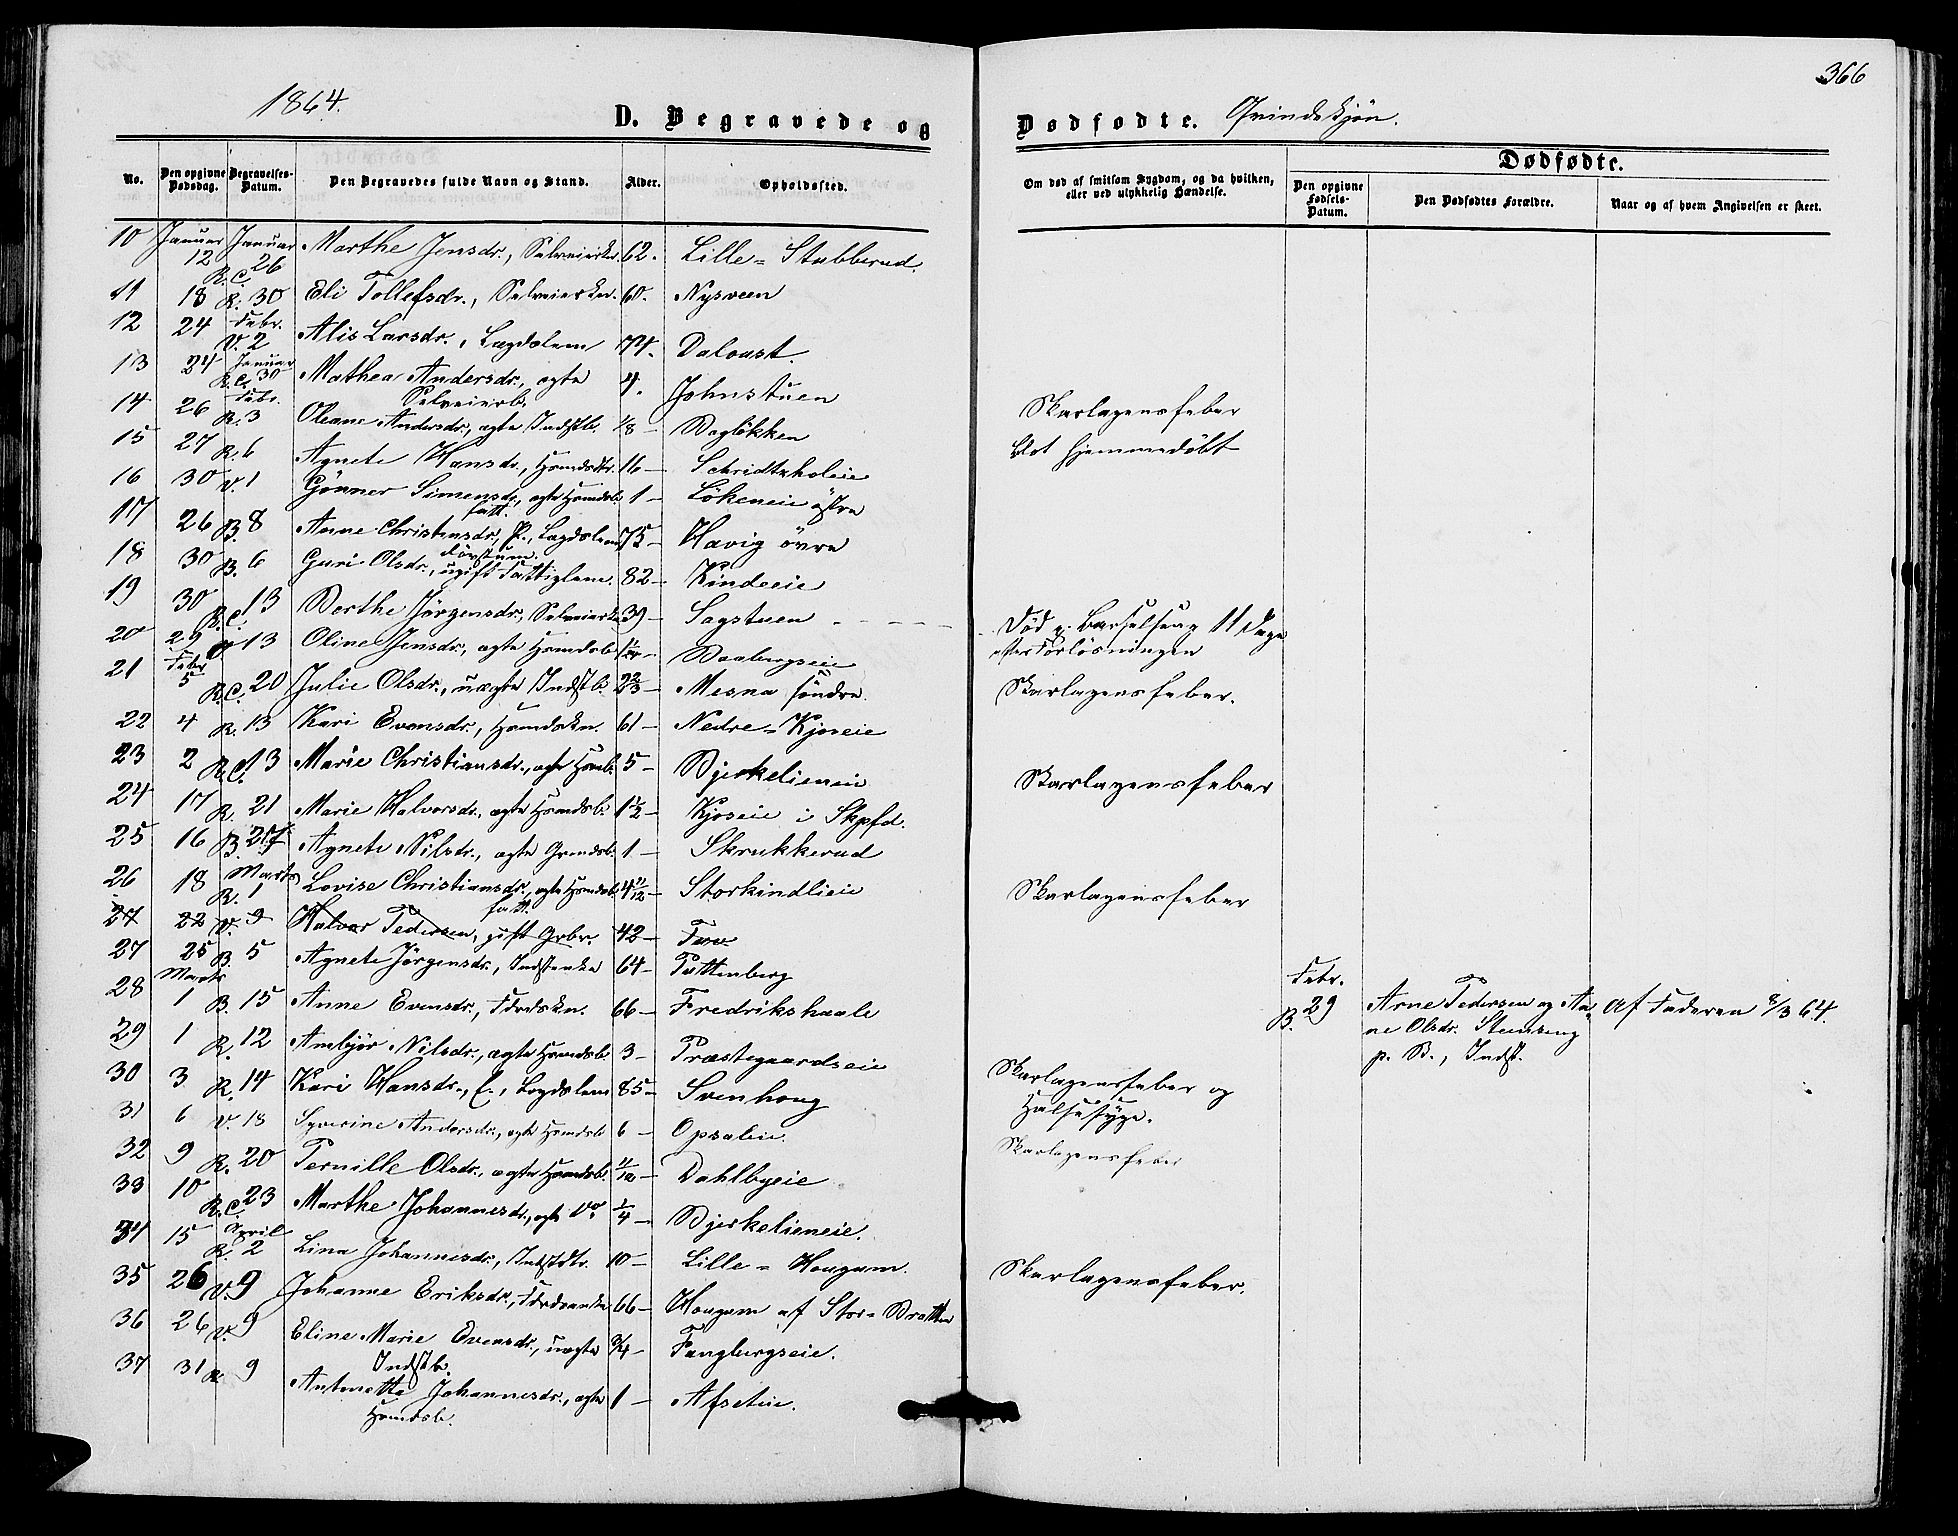 366
1864.
D. Begravede og Dødfødte. Qvindekjøn.
Dødfødte.
No. Den opgivne Dødsdag. Begravelses-Datum. Den Begravedes fulde Navn og Stand. Alder. Opholdssted. Om død af smitsom Sygdom, og da hvilken, eller ved ulykkelig Hændelse. Den opgivne Fødsels-Datum. Den Dødfødtes Forældre. Naar og af hvem Angivelsen er skeet.
10 Januar 12 Januar R.C. 26 Marthe Jensdr., Selveierkn. 62. Lille-Stubberud.
11 18 R. 30 Eli Tollefsdr., Selveierkn. 60. Nysveen
12 24 Febr. V. 2 Alis Larsdr., Lægdslem 74. Daloust.
13 24 Januar R.C. 30 Mathea Andersdr., ægte Selveierb. 4. Johnstuen Skarlagensfeber
14 26 Febr. R. 3 Oleane Andersdr., ægte Indstb. 1/8 - Bagløkken blot hjemmedøbt
15 27 R. 6 Agnete Hansdr., Hsmdsdtr. 16 -
16 30 V. 1 Gønner Simensdr., ægte Hsmdsb. 1 - Løkeneie østre
17 26 B. 8 Anne Christensdr., fatt. E., Lægdslem 75 - Havig øvre
18 30 B. 6 Guri Olsdr., døvstum. ugift Fattiglem. 82 - Kindeeie
19 30 R.C. 13 Berthe Jørgensdr., Selveierkn. 39 - Sagstuen Død p. Barselseng 11 Dage efter Forløsningen
20 29 V. 13 Oline Jensdr., ægte Hsmdsb. Baabergseie
21 Febr. 5 R.C. 20 Julie Olsdr., uægte Indstb. 2 2/3 - Mesna søndre. Skarlagensfeber.
22 4 R. 13 Kari Evensdr., Hsmdskn. 61 - Nedre-Kjoseie
23 2 R.C. 13 Marie Christiansdr., ægte Hsmb. 5 - Bjerkelieneie Skarlagensfeber
24 17 R. 21 Marie Halvorsdr., ægte Hsmdsb. 1 1/2 - Kjoseie i Skpfd.
25 16 B. 27 Agnete Nilsdr., ægte Grmdsb. 1 - Skrukkerud
26 18 Marts R. 1 Lovise Christiansdr., ægte Hsmdsb. 4 11/12 - Storkindlieie Skarlagensfeber
27 22 V. 9 Halvor Pedersen, fatt. gift Grbr. 42 -
27 25 B. 5 Agnete Jørgensdr., Indstenke 64 - Puttenberg
28 Marts 1 B. 15 Anne Evensdr., Fdrdskn. 66 - Fredrikshaale
Febr. B. 29 Arne Pedersen og Anne Olsdr. Stenseng p. B., Indst. Af Faderen 8/3 64.
29 1 R. 12 Ambjør Nilsdr., ægte Hsmdsb. 3 - Præstegaardseie Skarlagensfeber og Halssyge.
30 3 R. 14 Kari Hansdr., E., Lægdslem 85 - Svenhoug
31 6 V. 18 Syverine Andersdr., ægte Hsmdsb. 6 - Opsaleie. Skarlagensfeber
32 9 R. 20 Pernille Olsdr., ægte Hsmdsb. Dahlbyeie
33 10 R.C. 23 Marthe Johannesdr., ægte Do. 1/4 - Bjerkelieneie.
34 15 April R. 2 Lina Johannesdr., Indstdtr. 10 - Lille-Hougum. Skarlagensfeber.
35 26 V. 9 Johanne Eriksdr., Fdrdsenke 66 - Hougum af Stor-Bratten
36 26 V. 9 Eline Marie Evensdr., uægte Indstb. 3/4 - Fangbergseie.
37 31 R. 9 Antonette Johannesdr., ægte Hsmdsb. 1 - Afseteie.